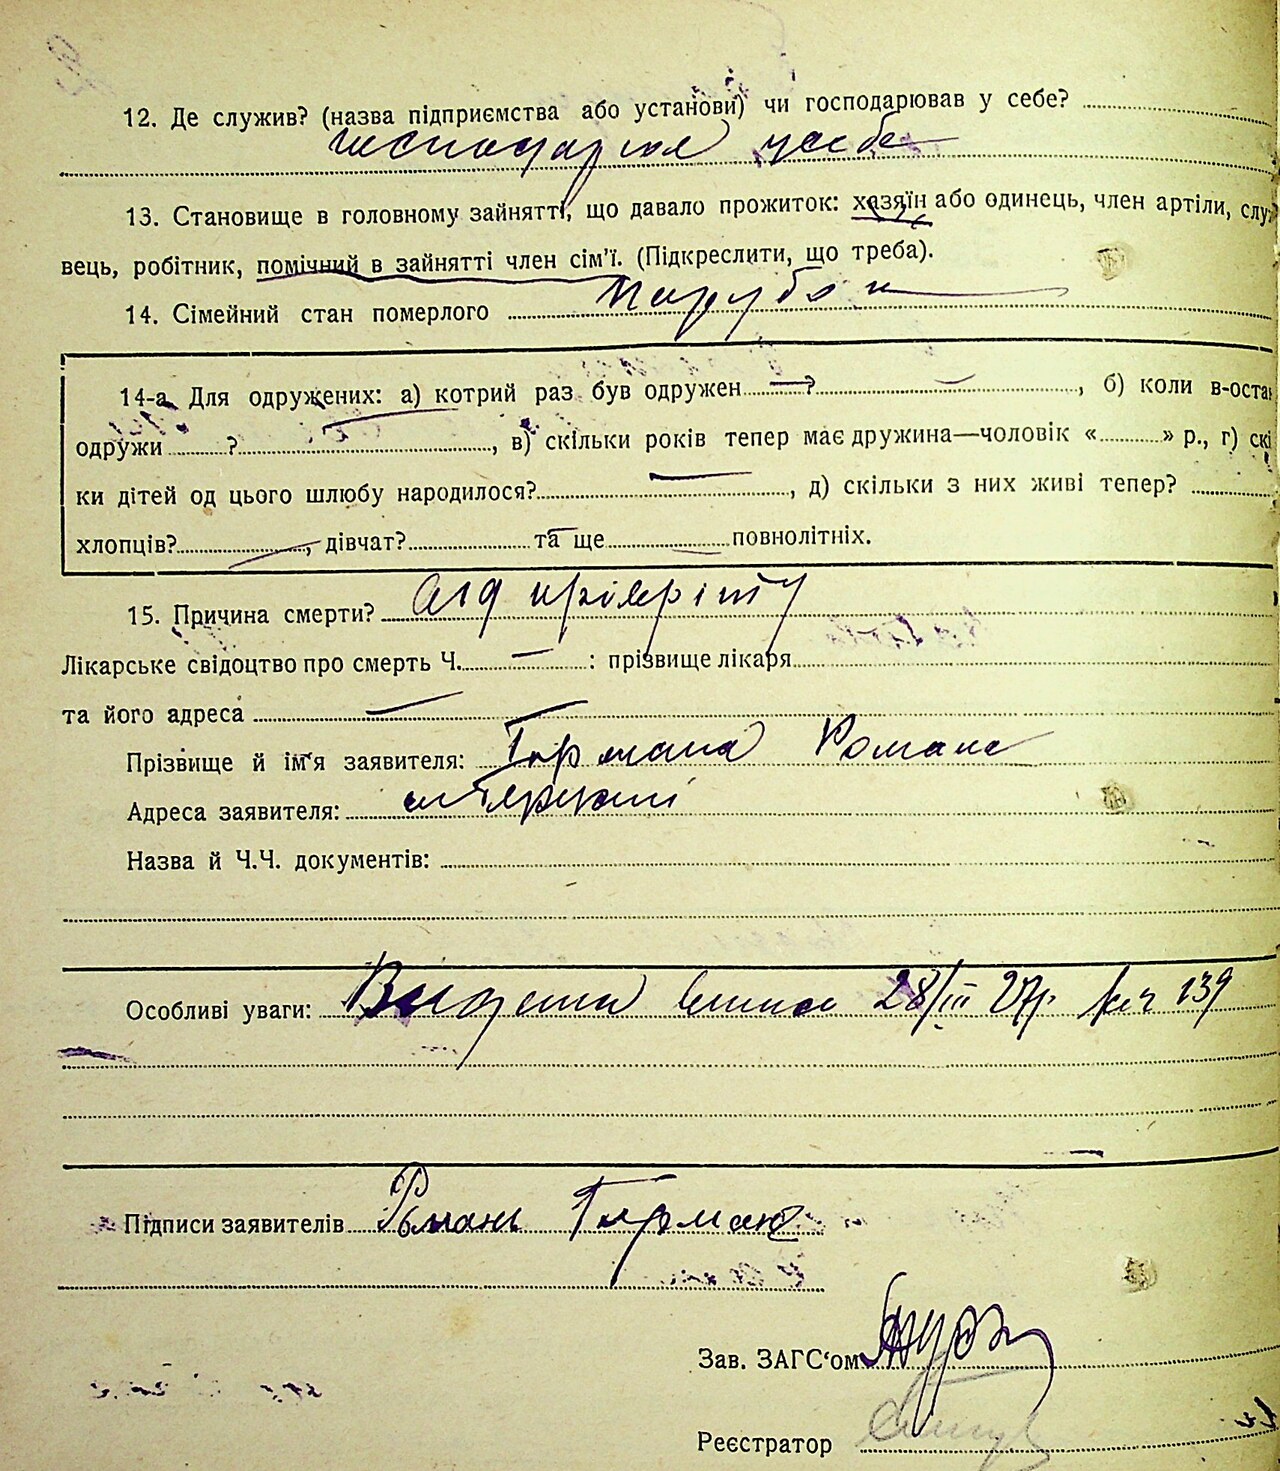 12. Де служив? (назва підприємства або установи) чи господарював у себе?
господарював у себе
13. Становище в головному зайнятті, що давало прожиток: хазяїн або одинець, член артіли, служ
вець, робітник, помічний в зайнятті член сім'ї. (Підкреслити, що треба).
14. Сімейний стан померлого парубок
14-а. Для одружених: а) котрий раз був одружен — ?, б) коли в-оста
одружи ?, в) скільки років тепер має дружина—чоловік « » р., г) скі
ки дітей од цього шлюбу народилося? —, д) скільки з них живі тепер?
хлопців? —, дівчат? та ще повнолітніх.
15. Причина смерти? од
Лікарське свідоцтво про смерть Ч. — : прізвище лікаря
та його адреса —
Прізвище й ім'я заявителя: Романа
Адреса заявителя:
Назва й Ч.Ч. документів:
Особливі уваги: 28/III 27р. 139
Підписи заявителів Романъ
Зав. ЗАГС'ом
Реєстратор